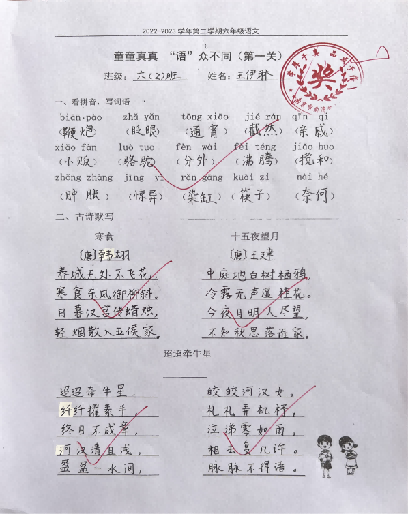 2022-2023学年第二学期六年级语文
童童真真 “语”众不同（第一关）
班级：六（2）班 姓名：王伊
一、看拼音，写词语
biān pào zhǎ yǎn tōng xiāo jié rán qīn qi
（鞭炮）（眨眼）（通宵）（截然）（亲戚）
xiǎo fàn luò tuo fèn wài fèi téng jiǎo huo
（小贩）（骆驼）（分外）（沸腾）（搅和）
zhǒng zhàng jīng yì rǎn gāng kuài zi nài hé
（肿胀）（惊异）（染缸）（筷子）（奈何）
二、古诗默写
寒食 十五夜望月
〔唐〕韩翃 〔唐〕王建
春城无处不飞花， 中庭地白树栖鸦，
寒食东风御柳斜。 冷露无声湿桂花。
日暮汉宫传蜡烛， 今夜月明人尽望，
轻烟散入五侯家。 不知秋思落谁家。
迢迢牵牛星
迢迢牵牛星， 皎皎河汉女。
纤纤擢素手， 札札弄机杼。
终日不成章， 泣涕零如雨。
河汉清且浅， 相去复几许。
盈盈一水间， 脉脉不得语。
奖